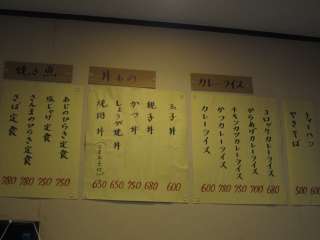 焼き魚
あじのひらき定食 750
塩じゃけ定食 750
さんまのひらき定食 780
さば定食 780
丼もの
玉子丼 600
親子丼 680
かつ丼 750
しょうが焼丼 650
焼肉丼 650
カレーライス
コロッケカレーライス 680
からあげカレーライス 700
チキンカツカレーライス 750
かつカレーライス 780
カレーライス 600
チャーハン 600
やきそば 500